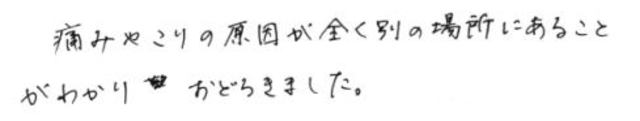 痛みやこりの原因が全く別の場所にあること
がわかり おどろきました。